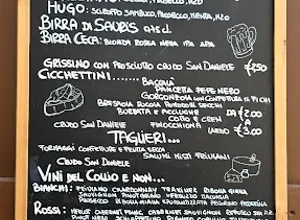 HUGO: SCIROPPO SAMBUCO, PROSECCO, MENTA, H2O
BIRRA DI SAURIS
BIRRA CECA: BIONDA ROSSA NERA IPA APA
GRISSINO CON PROSCIUTTO CRUDO SAN DANIELE €2,50
CICCHETTINI:
BACCALÀ
PANCETTA PEPE NERO
GORGONZOLA CON CONFETTURA DI FICHI
BRESAOLA RUCOLA PORCINI SECCHI
BURRATA E ACCIUGHE DA €2,00
COTTO E CREN
CRUDO SAN DANIELE A
€3,00
TAGLIERI...
FORMAGGI CONFETTURE E FRUTTA SECCA
SALUMI MISTI FRIULANI
CRUDO SAN DANIELE
VINI DEL COLLIO E NON...
BIANCHI: FRIULANO CHARDONNAY TRAMINER RIBOLLA GIALLA
SAUVIGNON PINOT GRIGIO
RIBOLLA
ROSSI: MERLOT CABERNET FRANC CABERNET SAUVIGNON REFOSCO
PINOT NERO SCHIOPPETTINO